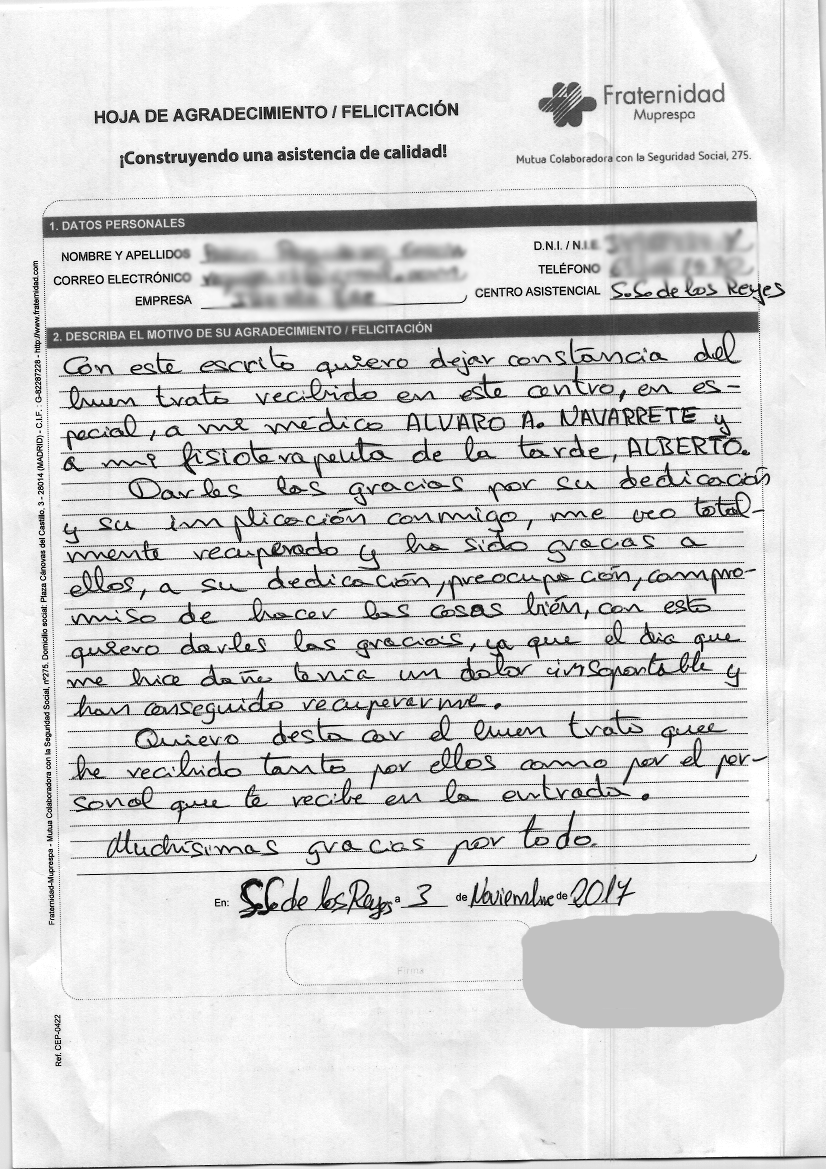 HOJA DE AGRADECIMIENTO / FELICITACIÓN
¡Construyendo una asistencia de calidad!
Fraternidad
Muprespa
Mutua Colaboradora con la Seguridad Social, 275.
1. DATOS PERSONALES
NOMBRE Y APELLIDOS
D.N.I. / N.I.E.
CORREO ELECTRÓNICO
TELÉFONO
EMPRESA
CENTRO ASISTENCIAL S.S. de los Reyes
2. DESCRIBA EL MOTIVO DE SU AGRADECIMIENTO / FELICITACIÓN
Con este escrito quiero dejar constancia del
buen trato recibido en este centro, en es-
pecial, a mi médico ALVARO A. NAVARRETE y
a mi fisioterapeuta de la tarde, ALBERTO.
Darles las gracias por su dedicación
y su implicación conmigo, me veo total-
mente recuperado y ha sido gracas a
ellos, a su dedicación, preocupación, compro-
miso de hacer las cosas bién, con esto
quiero darles las gracias, ya que el dia que
me hice daño tenia un dolor insoportable y
han conseguido recuperarme.
Quiero destacar el buen trato que
he recibido tanto por ellos como por el per-
sonal que te recibe en la entrada.
Muchísimas gracias por todo.
En: S.S de los Reyes a 3 de Noviembre de 2017
Firma
Fraternidad-Muprespa - Mutua Colaboradora con la Seguridad Social, nº275. Domicilio social: Plaza Cánovas del Castillo, 3 - 28014 (MADRID) - C.I.F. : G-82287228 - http://www.fraternidad.com
Ref. CEP-0422